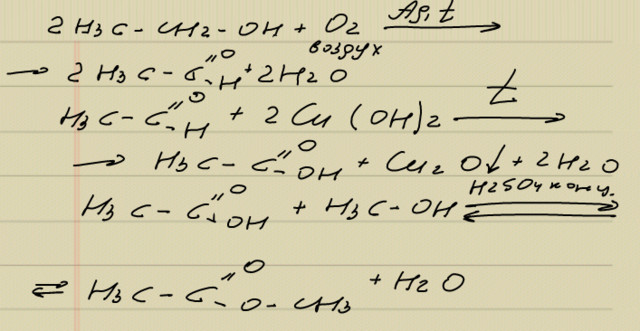 2 H3C - CH2 - OH + O2 Ag, t →
воздух
→ 2 H3C - C =O - H + 2H2O
H3C - C =O - H + 2 Cu (OH)2 t →
→ H3C - C =O - OH + Cu2O↓ + 2H2O
H3C - C =O - OH + H3C - OH H2SO4 конц. ⇌
⇌ H3C - C =O - O - CH3 + H2O